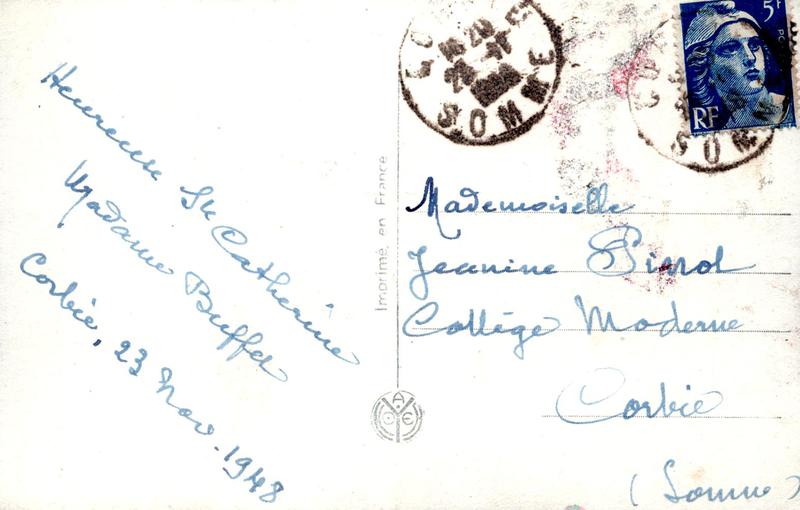 Heureuse Ste Catherine
Madame Buffet
Corbie, 23 Nov. 1948
Imprimé en France
SOMME
5F
RF
Mademoiselle
Jeanine Pinot
Collège Moderne
Corbie
(Somme)